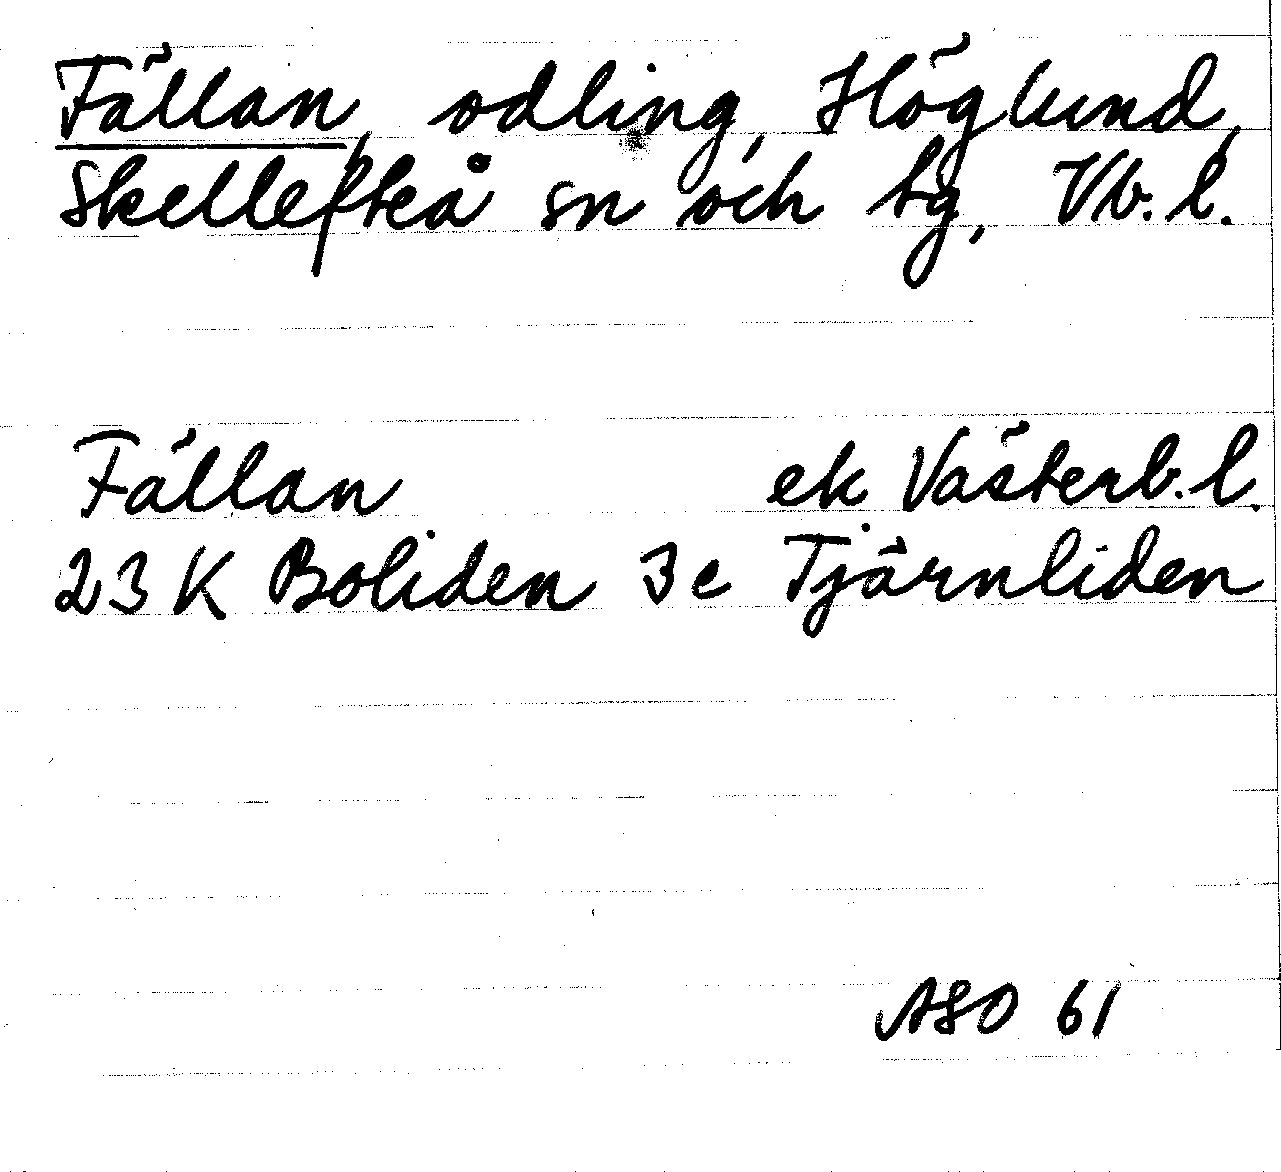 Fällan, odling, Höglund,
Skellefteå sn och tg, Vb. l.
Fällan ek Västerb. l.
23 K Boliden 3 e Tjärnliden
ASO 61